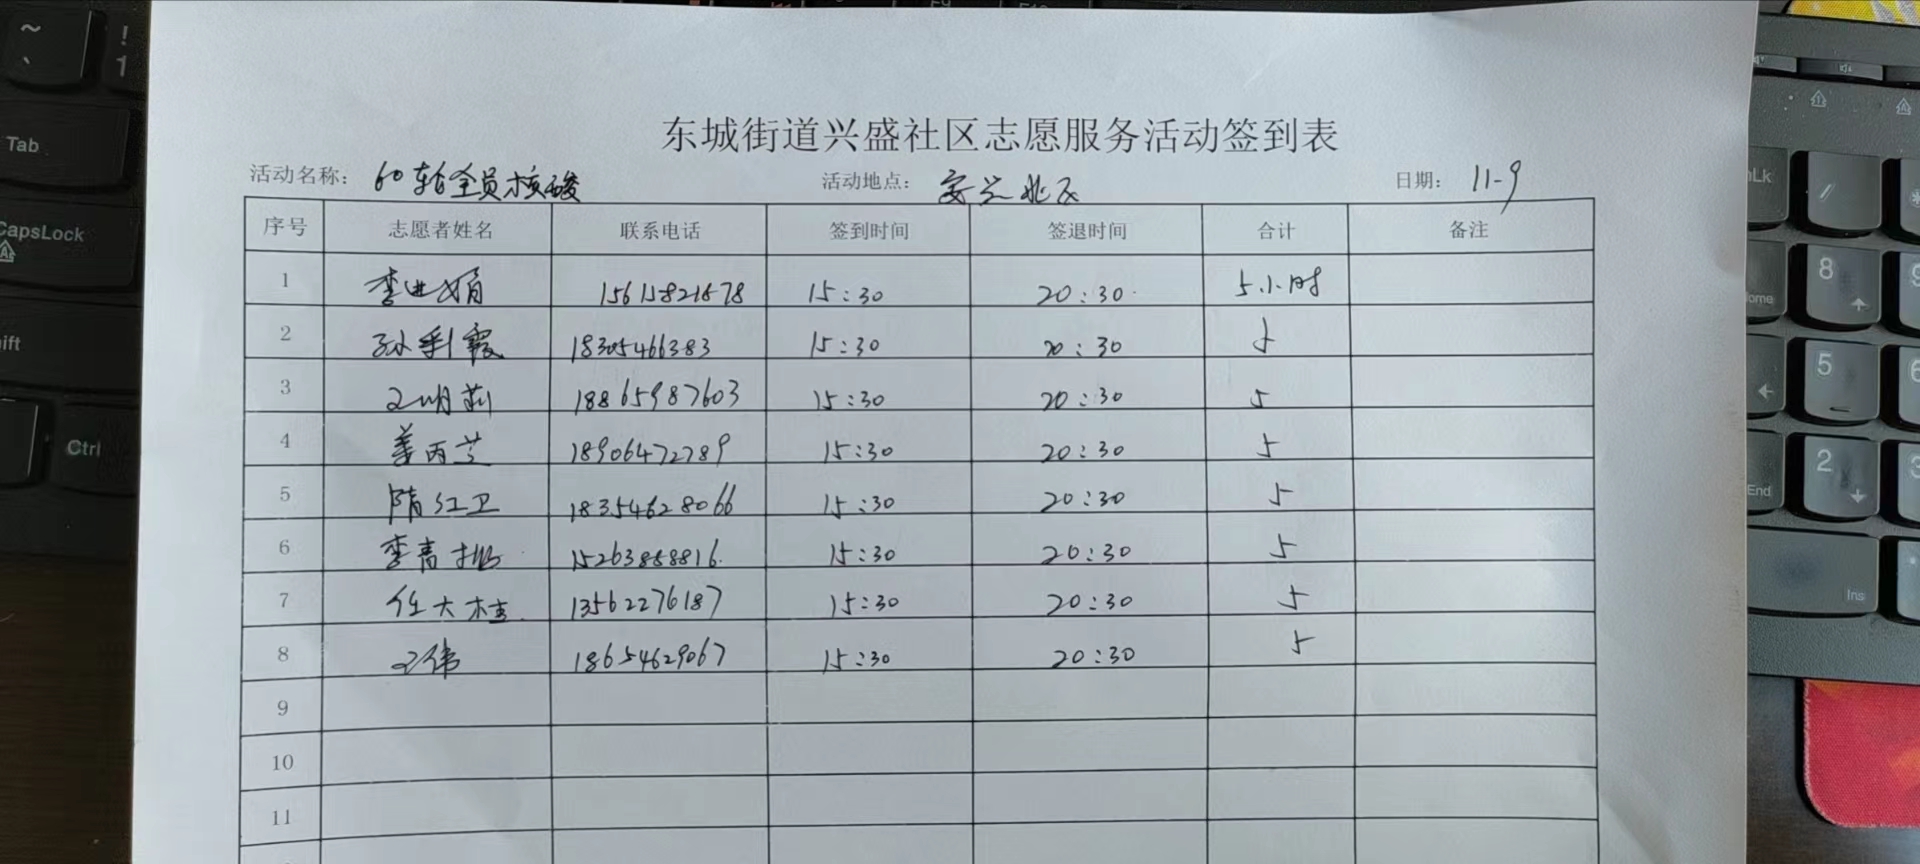 东城街道兴盛社区志愿服务活动签到表
活动名称： 60轮全员核酸 活动地点： 安兴北区 日期： 11-9
序号 志愿者姓名 联系电话 签到时间 签退时间 合计 备注
1 李进娟 15:30 20:30 5小时
2 孙利霞 18305466383 15:30 20:30 5
3 王明莉 18865987603 15:30 20:30 5
4 姜丙芝 18906472789 15:30 20:30 5
5 隋红卫 18354628066 15:30 20:30 5
6 李青 15263858816 15:30 20:30 5
7 任大桂 13562276187 15:30 20:30 5
8 王伟 18654629067 15:30 20:30 5
9
10
11
~
!
1
Tab
CapsLock
ift
Ctrl
F9
F10
Lk
/
8
ome
5
2
End
Ins